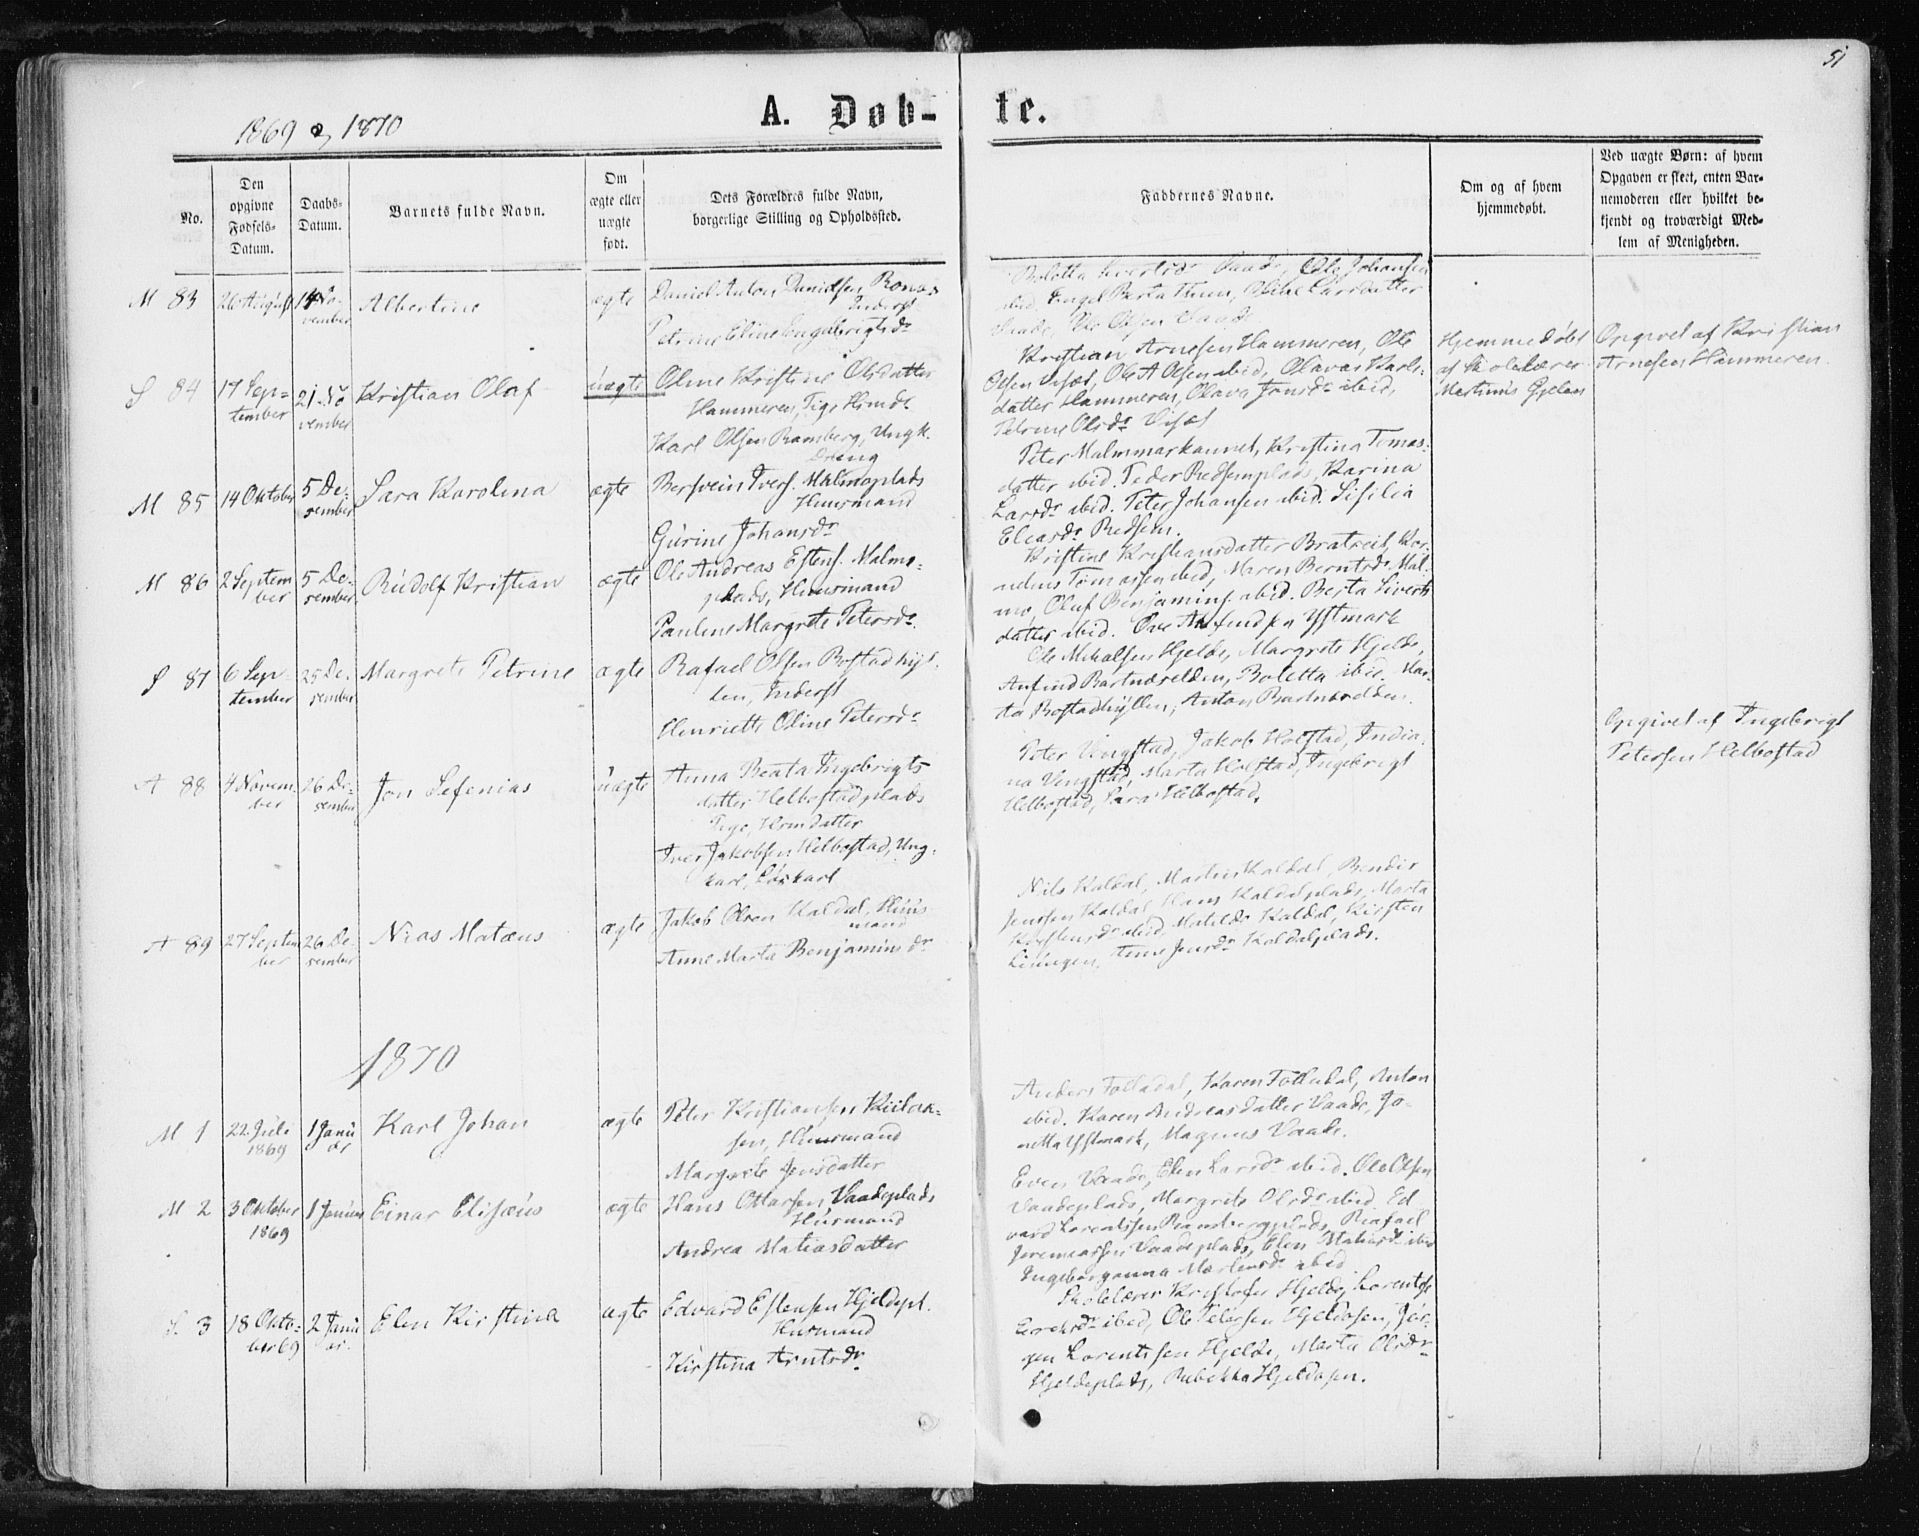 51
1869 & 1870
A. Døb-
te.
No.
Den opgivne Fødsels-Datum.
Daabs-Datum.
Barnets fulde Navn.
Om ægte eller uægte født.
Dets Forældres fulde Navn,
borgerlige Stilling og Opholdssted.
Faddernes Navne.
Om og af hvem
hjemmedøbt.
Ved uægte Børn: af hvem
Opgaven er skeet, enten Bar-
nemoderen eller hvilket be-
kjendt og troværdigt Med-
lem af Menigheden.
M 83 26 August 14 No-
vember
Albertine
ægte
Daniel Anton Danielsen
Inderst
Petrine Eline Engebrigtsdr
Ole Johansen
ibid, Larsdatter
S 84 17 Sep-
tember
21 No
vember
Kristian Olaf
uægte
Oline Kristine Olsdatter
Hammeren, Tige
Karl Olsen Ramberg, Ungk.
Dreng
Kristian Arnesen Hammeren, Ole
Olsen Ole A Olsen ibid, Olava Karls-
datter Hammeren, Olava ibid,
Petrine Olsdr
Hjemmedøbt
af Skolelærer
Martinus Gjelen
Opgivet af Kristian
Arnesen Hammeren
M 85 14 Oktober
5 De-
sember
Sara Karolina
ægte
Bersvein Ivers. Malmoplads
Huusmand
Gurine Johansdr
Peter Malmmarkaunet, Kristina Tomas-
datter ibid. Peder Redsemplads, Karina
Larsdr ibid. Peter Johansen ibid. Sisilia
Eliasdr Redsem.
M 86 2 Septem
ber
5 De-
sember
Rudolf Kristian
ægte
Ole Andreas Estens. Malmo-
plads, Huusmand
Pauline Margrete Petersdr
Kristine Kristiansdatter Bratreit, Kor-
nelius Tomassen ibid, Maren Berntsdr Mal-
mo, Oluf Benjamins. ibid. Berta Siverts
datter ibid. Ystmark
S 87 6 Sep-
tember
25 De-
sember
Margrete Petrine
ægte
Rafael Olsen Bostadhyl-
len, Inderst
Henriette Oline Petersdr
Ole Mikalsen Hjelde, Margrete Hjelde,
Anfind Bartnæselden, Boletta ibid. Mar-
ta Bostadhyllen, Anton
A 88 4 Novem-
ber
26 De-
sember
Jon Sefenias
uægte
Anna Beata Ingebrigts
datter Helbostadplads
Pige,
Iver Jakobsen Helbostad, Ung-
karl, Løskarl
Peter Vengstad, Jakob Holstad, India-
na Vengstad, Marta Holstad, Ingebrigt
Helbostad, Sara Helbostad.
Opgivet af Ingebrigt
Petersen Helbostad
A 89 27 Septem
ber
26 De-
sember
Nias Matæus
ægte
Jakob Olsen Kaldal, Huus-
mand
Anne Marta Benjaminsdr
Nils Kaldal, Martin Kaldal, Bendix
Jenssen Kaldal, Hans Kaldalplads, Marta
ibid. Matilde Kaldal, Kirsten
Anne Jensdr Kaldalplads.
1870
M 1 22 Juli
1869
1 Janu
ar
Karl Johan
ægte
Peter Kristiansen
Huusmand
Margrete Jensdatter
Anders Folladal, Karen Folladal, Anton
ibid. Karen Andreasdatter Vaade,
Ystmark, Magnus Vaade.
M 2 3 Oktober
1869
1 Januar
Einar Elisæus
ægte
Hans Ottarsen Vaadeplads
Husmand
Andrea Matiasdatter
Even Vaade, Elen Larsdr ibid. Ole Olsen
Vaadeplads, Margrete Olsdr ibid. Ed-
vard Lorentssen Rambergplads, Rafael
Jeremiassen Vaadeplads, Elen Matiasdr ibid
Ingeborganna ibid
S. 3 18 Okto-
ber 69
2 Janu
ar.
Elen Kirstina
ægte
Edvard Estensen Hjeldepl.
Husmand
Kirstina Arntsdr
Skolelærer Kristofer Hjelde, Lorentse
ibid, Ole Petersen Hjeldosen, Jør-
gen Lorentssen Hjelde, Marta Olsdr
Hjeldeplads, Rebekka Hjeldosen.